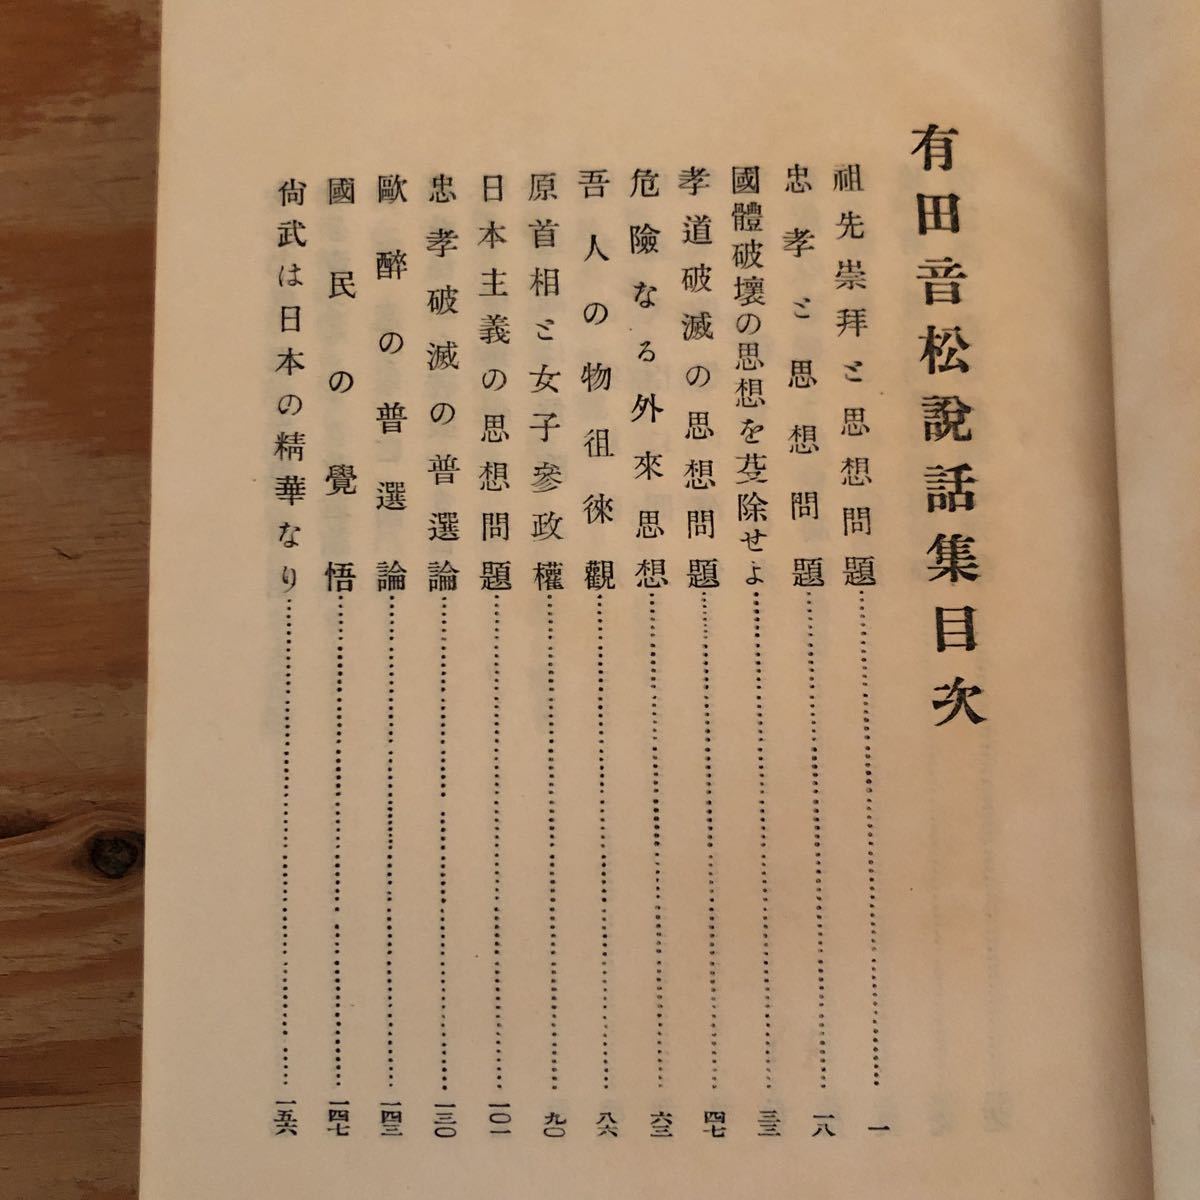 有田音松說話集目次
祖先崇拜と思想問題……一
忠孝と思想問題……一八
國體破壞の思想を芟除せよ……三三
孝道破滅の思想問題……四七
危險なる外來思想……六三
吾人の物徂徠觀……八六
原首相と女子參政權……九〇
日本主義の思想問題……一〇一
忠孝破滅の普選論……一三〇
歐醉の普選論……一四三
國民の覺悟……一四七
尙武は日本の精華なり……一五六